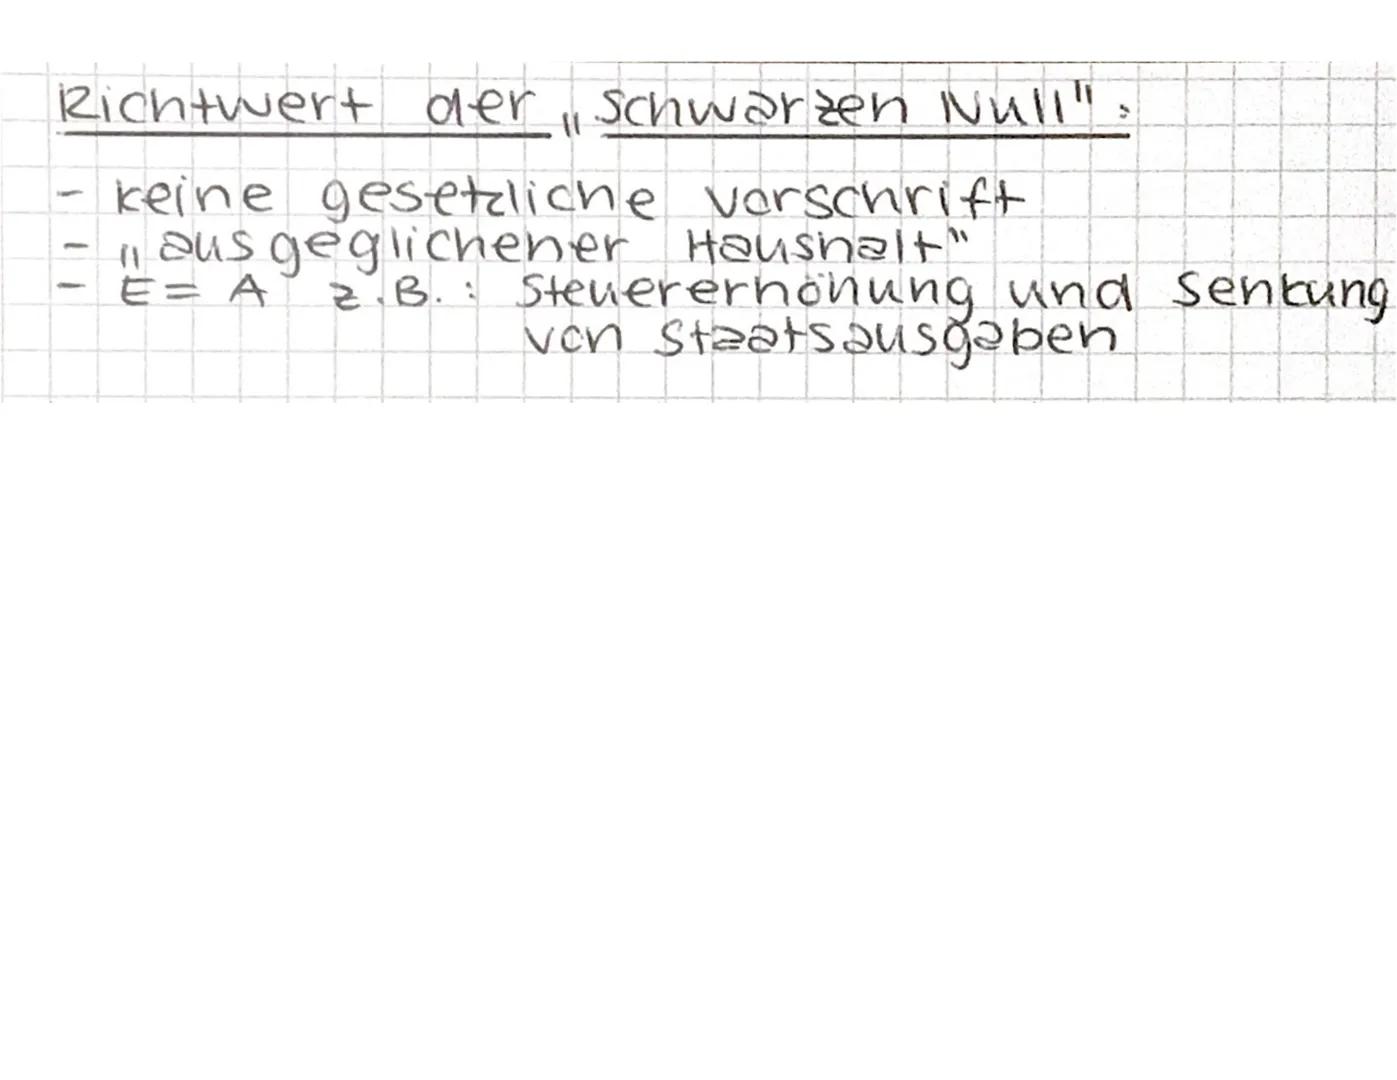 Richtwert der „schwarzen Null":
- keine gesetzliche vorschrift
- „ausgeglichener Haushalt"
- E = A z.B.: Steuererhöhung und senkung
von staatsausgaben